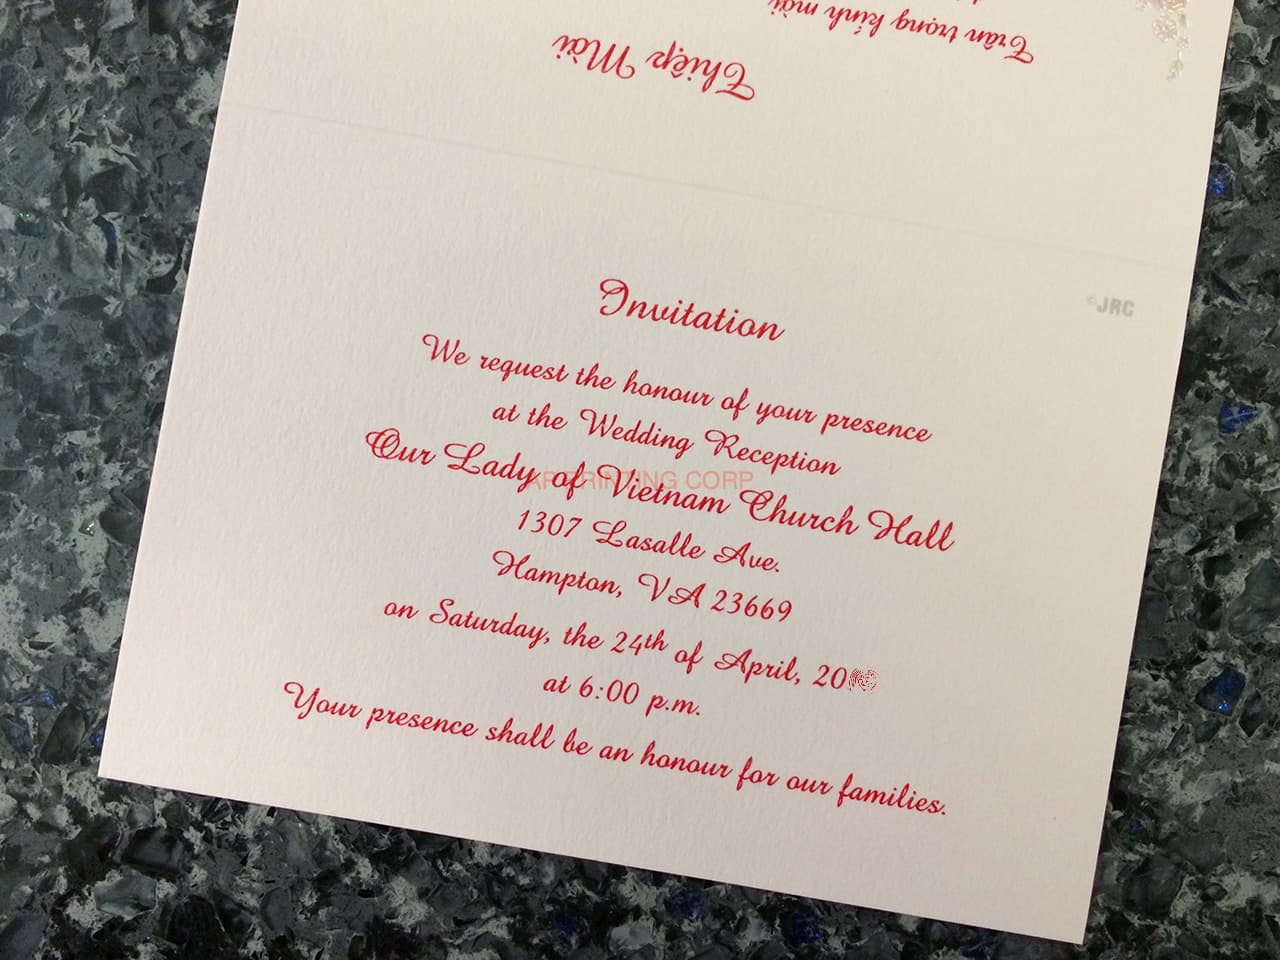 Trân trọng kính mời
Thiệp Mời
©JRC
Invitation
We request the honour of your presence
at the Wedding Reception
Our Lady of Vietnam Church Hall
APPRINTING CORP
1307 Lasalle Ave.
Hampton, VA 23669
on Saturday, the 24th of April,
at 6:00 p.m.
Your presence shall be an honour for our families.